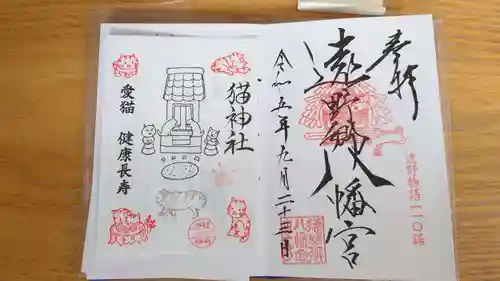 奉拝
遠野郷八幡宮
令和五年九月二十三日
遠野物語一一〇話
猫神社
愛猫 健康長寿